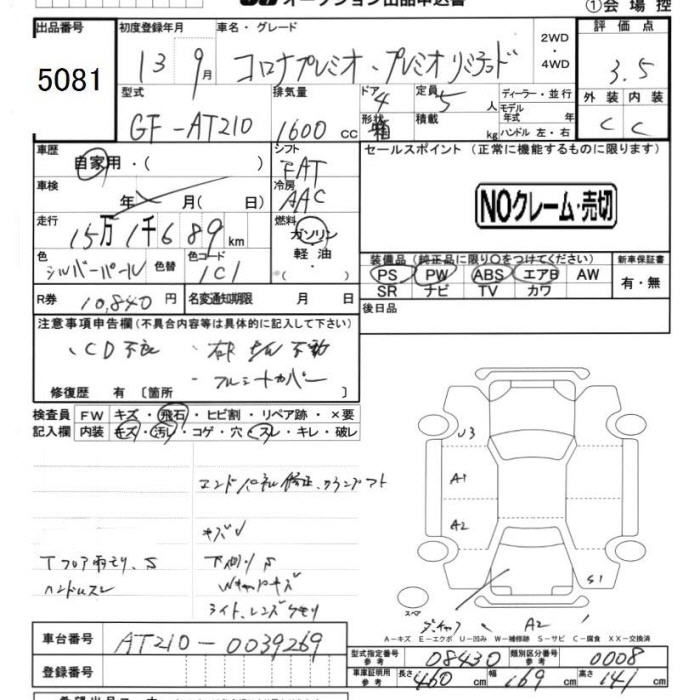 オークション出品申込書 ①会場控
出品番号 初度登録年月 車名・グレード 2WD・4WD 評価点
5081 13 9月 コロナプレミオ・プレミオリミテッド 3.5
型式 排気量 ドア 定員 ディーラー・並行 外装 内装
GF-AT210 1600cc 4 5人 モデル年式 年 C C
形状 箱 積載 kg ハンドル 左・右
車歴 シフト セールスポイント (正常に機能するものに限ります)
自家用・( ) FAT
車検 冷房 NOクレーム・売切
年 月( 日) AAC
走行 燃料
15万1千689km ガソリン
色 色替 色コード 軽油 装備品 (純正品に限り○をつけてください) 新車保証書
シルバーパール 1C1 ・( PS PW ABS エアB AW 有・無
R券 10,840円 名変通知期限 月 日 SR ナビ TV カワ
後日品
注意事項申告欄(不具合内容等は具体的に記入して下さい)
、CD不良
・フルシートカバー
修復歴 有 〔箇所 〕
検査員 FW キズ・飛石・ヒビ割・リペア跡・×要
記入欄 内装 キズ・汚レ・コゲ・穴・スレ・キレ・破レ
U3
A1
A2
エンドパネル修正、
キズ
Tフロア雨モリ、S 下廻りS
ハンドルスレ
ライト、レンズクモリ
S1
スペア
A2
A-キズ E-エクボ U-凹み W-補修跡 S-サビ C-腐食 XX-交換済
車台番号 AT210-0039269
型式指定番号 参考 08430 類別区分番号 参考 0008
登録番号 車庫証明用 参考 長さ 460cm 幅 169cm 高さ 141cm